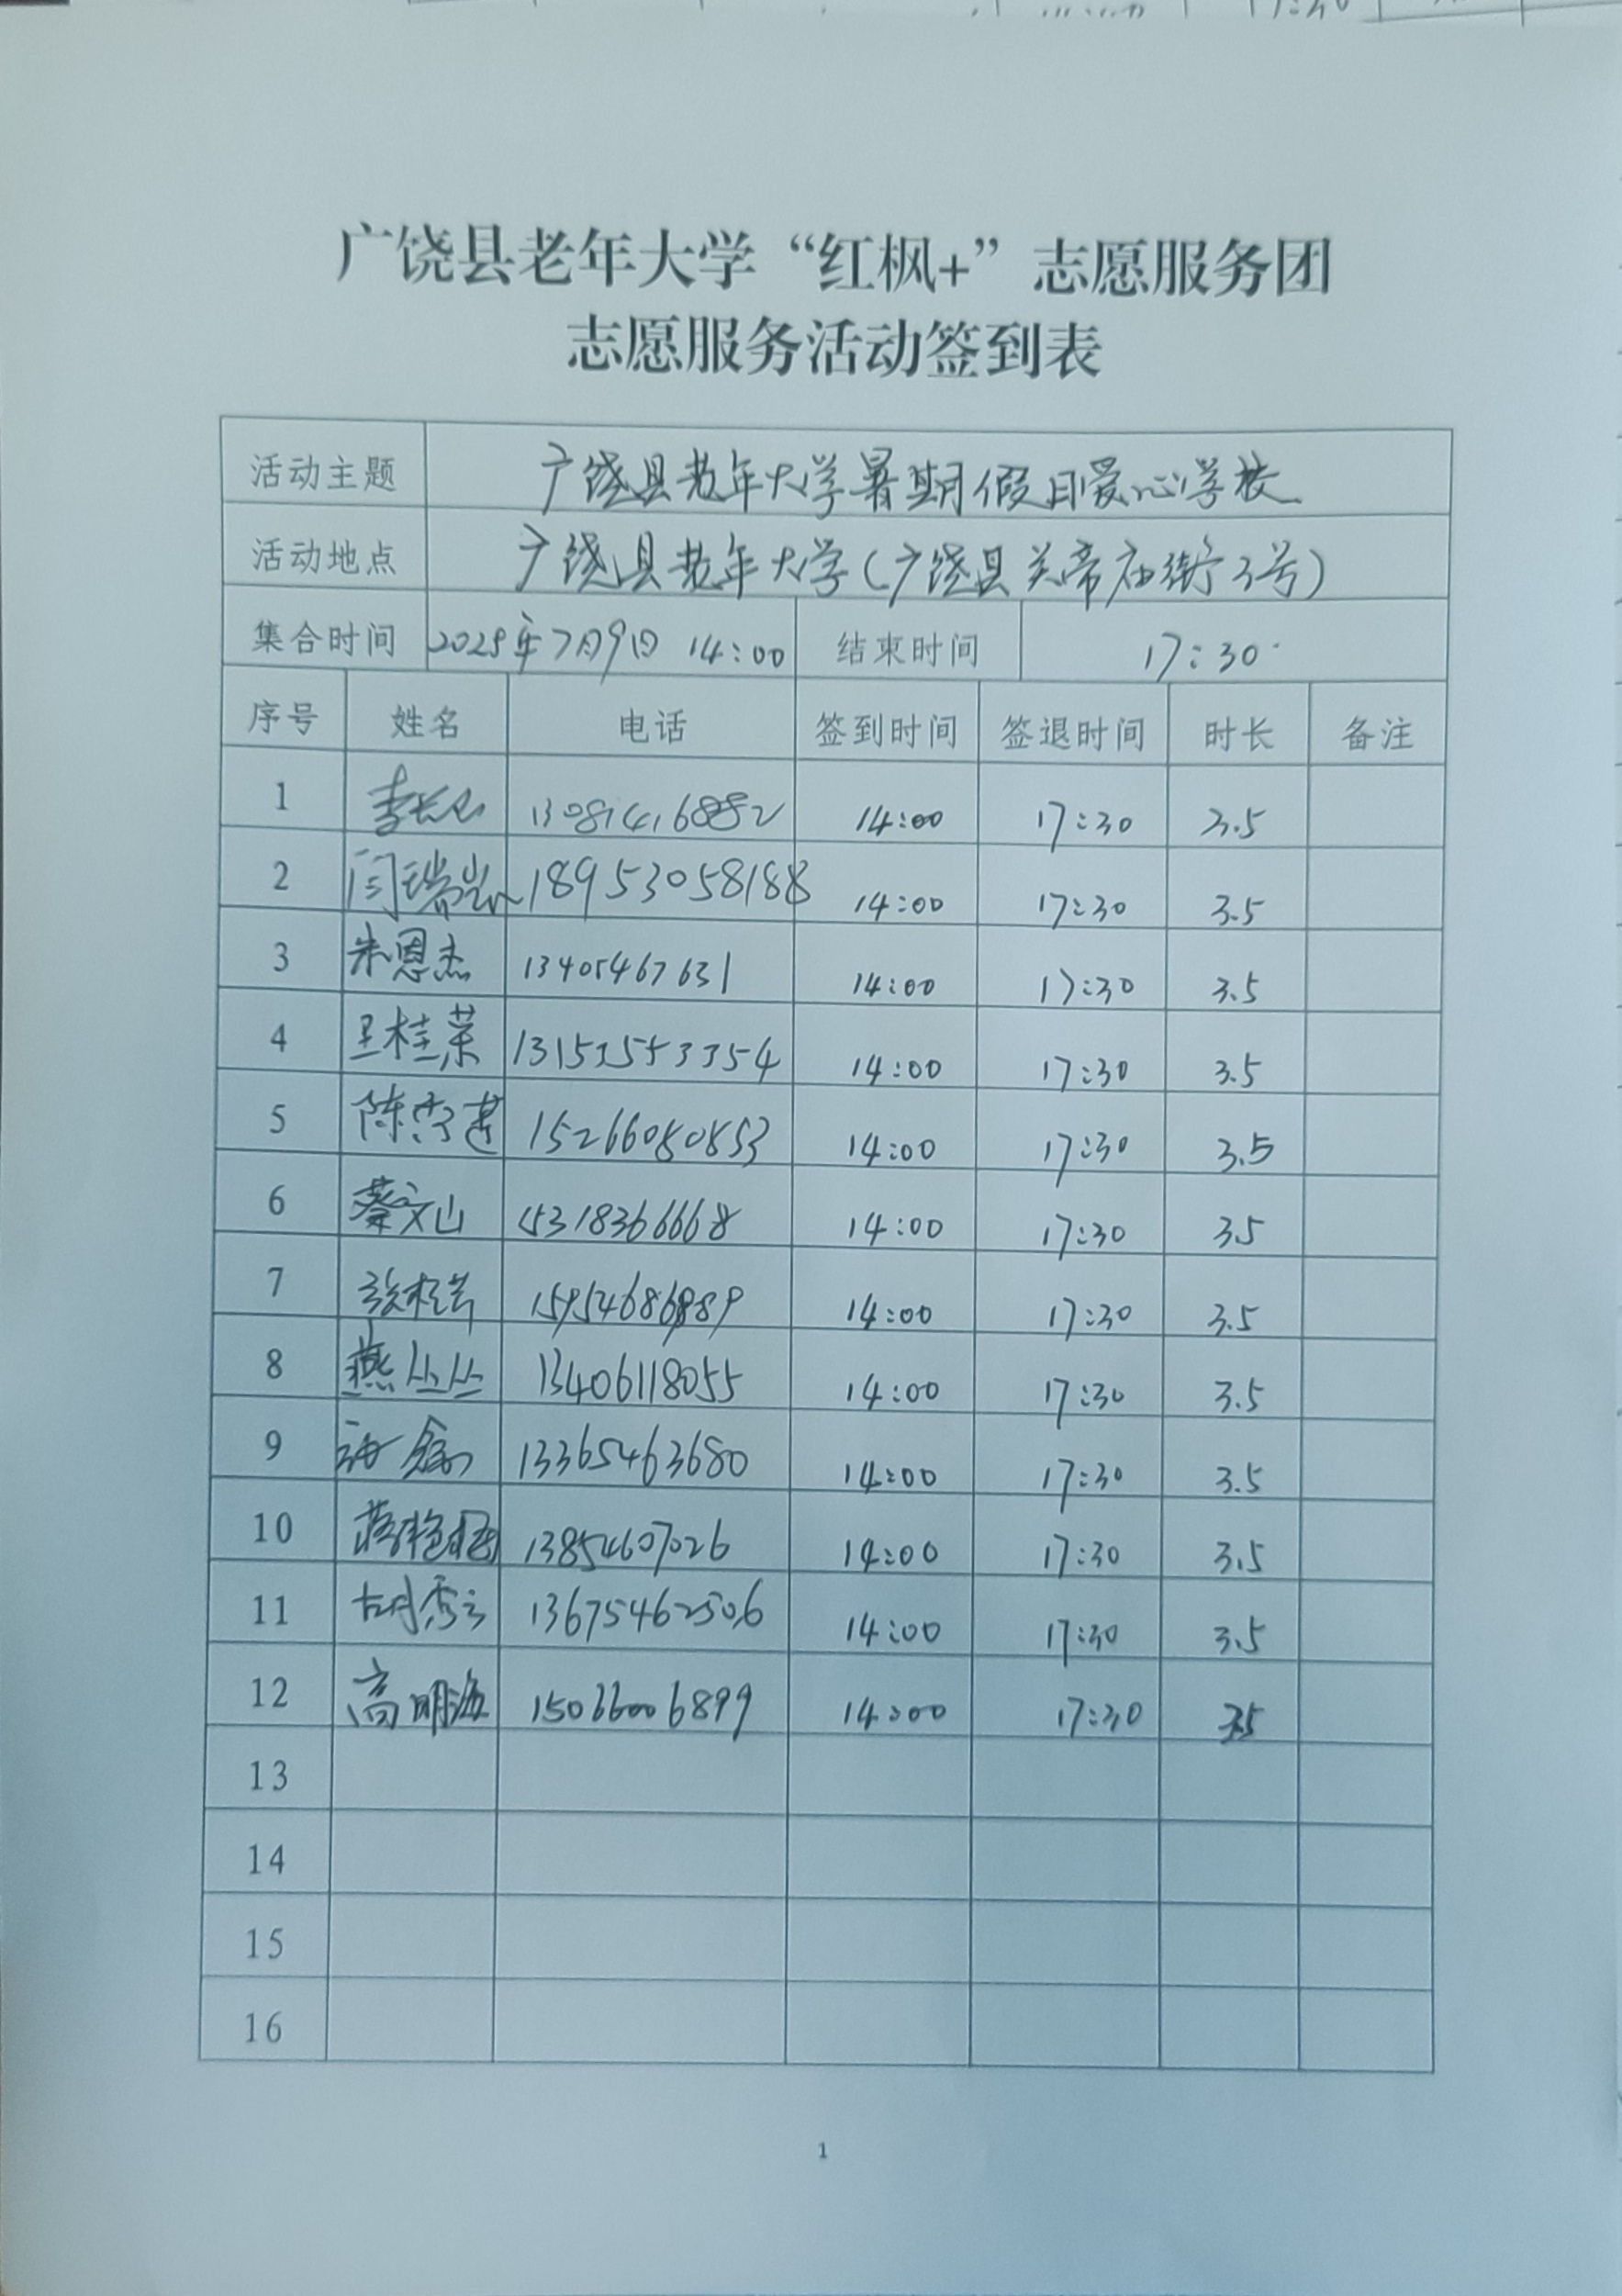 广饶县老年大学“红枫+”志愿服务团
志愿服务活动签到表
活动主题 广饶县老年大学暑期假日爱心学校
活动地点 广饶县老年大学(广饶县关帝庙街3号)
集合时间 2025年7月9日 14:00 结束时间 17:30
序号 姓名 电话 签到时间 签退时间 时长 备注
1 14:00 17:30 3.5
2 18953058188 14:00 17:30 3.5
3 朱恩杰 13405467631 14:00 17:30 3.5
4 王桂荣 14:00 17:30 3.5
5 15266080853 14:00 17:30 3.5
6 蔡文山 15318366668 14:00 17:30 3.5
7 14:00 17:30 3.5
8 燕丛丛 13406118055 14:00 17:30 3.5
9 13365463680 14:00 17:30 3.5
10 13854607026 14:00 17:30 3.5
11 胡秀云 13675462506 14:00 17:30 3.5
12 高明海 15066006899 14:00 17:30 3.5
13
14
15
16
1